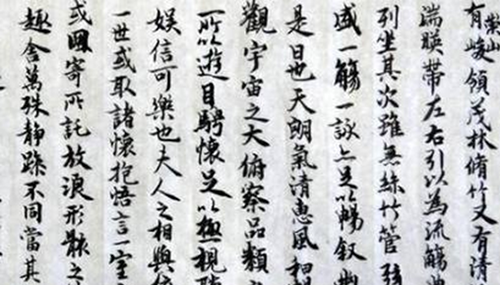 有崇山峻領茂林脩竹又有清
湍暎帶左右引以為流觴曲
列坐其次雖無絲竹管弦
盛一觴一詠亦足以暢叙幽
是日也天朗氣清惠風和
觀宇宙之大俯察品類之
所以遊目騁懷足以極視聽
娛信可樂也夫人之相與俯
一世或取諸懷抱悟言一室
或因寄所託放浪形骸之
趣舍萬殊靜躁不同當其